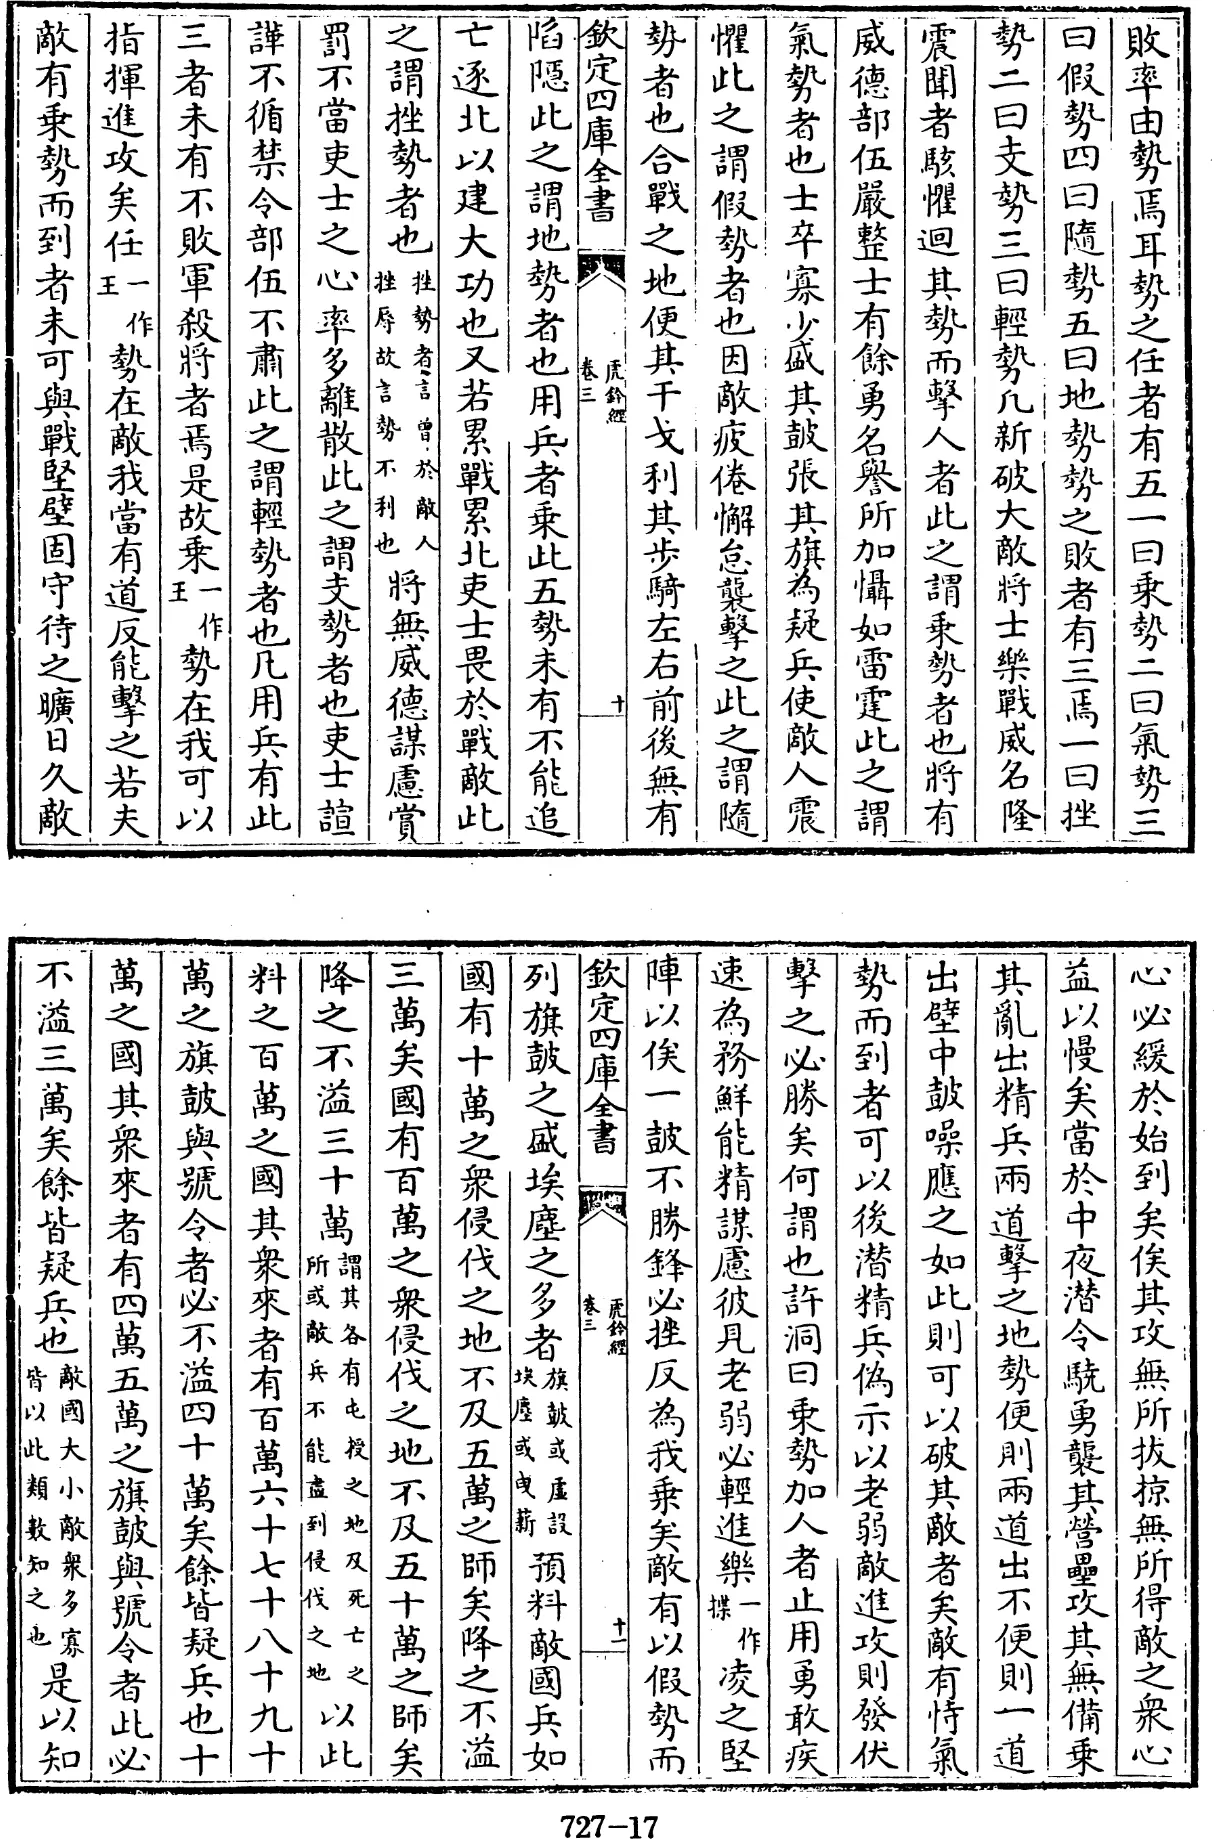 敗率由勢焉耳勢之任者有五一曰乗勢二曰氣勢三
曰假勢四曰隨勢五曰地勢勢之敗者有三焉一曰挫
勢二曰支勢三曰輕勢凡新破大敵將士樂戰威名隆
震聞者駭懼迴其勢而擊人者此之謂乗勢者也將有
威德部伍嚴整士有餘勇名譽所加懾如雷霆此之謂
氣勢者也士卒寡少盛其鼓張其旗為疑兵使敵人震
懼此之謂假勢者也因敵疲倦懈怠襲擊之此之謂隨
勢者也合戰之地便其干戈利其步騎左右前後無有
欽定四庫全書
虎鈐經
卷三
十
陷隱此之謂地勢者也用兵者乗此五勢未有不能追
亡逐北以建大功也又若累戰累北吏士畏於戰敵此
之謂挫勢者也挫勢者言曾於敵人挫辱故言勢不利也將無威德謀慮賞
罰不當吏士之心率多離散此之謂支勢者也吏士諠
譁不循禁令部伍不肅此之謂輕勢者也凡用兵有此
三者未有不敗軍殺將者焉是故乗一作王勢在我可以
指揮進攻矣任一作王勢在敵我當有道反能擊之若夫
敵有乗勢而到者未可與戰堅壁固守待之曠日久敵
心必緩於始到矣俟其攻無所拔掠無所得敵之衆心
益以慢矣當於中夜潜令驍勇襲其營壘攻其無備乗
其亂出精兵兩道擊之地勢便則兩道出不便則一道
出壁中鼓噪應之如此則可以破其敵者矣敵有恃氣
勢而到者可以後潜精兵偽示以老弱敵進攻則發伏
擊之必勝矣何謂也許洞曰乗勢加人者止用勇敢疾
速為務鮮能精謀慮彼見老弱必輕進樂一作揲凌之堅
陣以俟一鼓不勝鋒必挫反為我乗矣敵有以假勢而
欽定四庫全書
虎鈐經
卷三
十一
列旗鼓之盛埃塵之多者旗鼓或虛設埃塵或曳薪預料敵國兵如
國有十萬之衆侵伐之地不及五萬之師矣降之不溢
三萬矣國有百萬之衆侵伐之地不及五十萬之師矣
降之不溢三十萬謂其各有屯授之地及死亡之所或敵兵不能盡到侵伐之地以此
料之百萬之國其衆來者有百萬六十七十八十九十
萬之旗鼓與號令者必不溢四十萬矣餘皆疑兵也十
萬之國其衆來者有四萬五萬之旗鼓與號令者此必
不溢三萬矣餘皆疑兵也敵國大小敵衆多寡皆以此類數知之也是以知
727-17